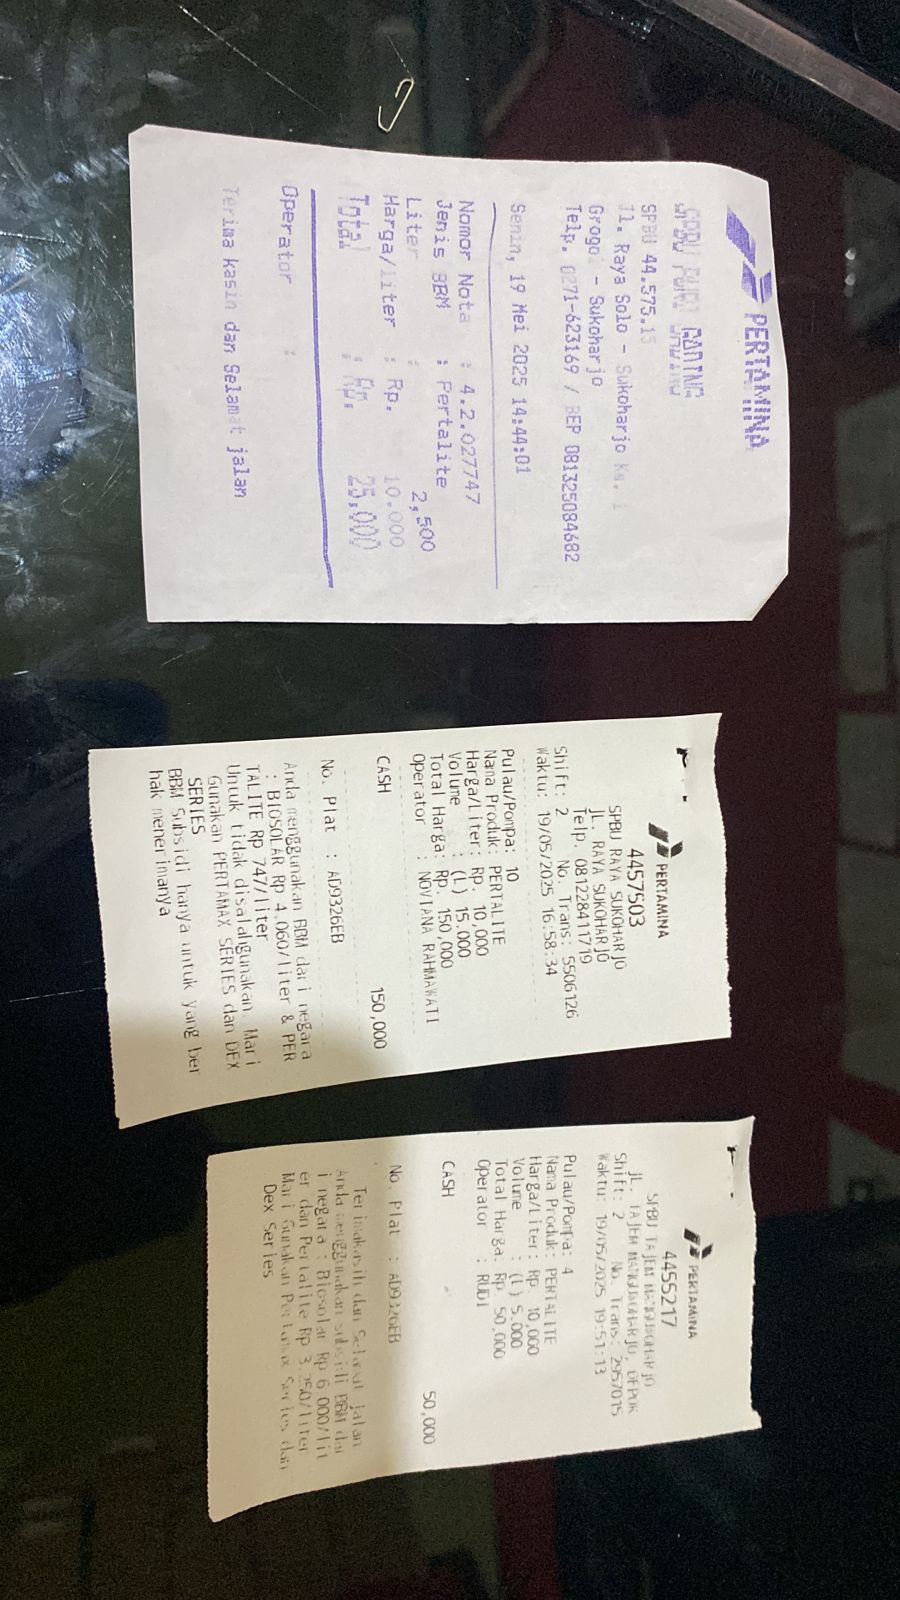 PERTAMINA
SPBU PURI GADING
SPBU 44.575.15
Jl. Raya Solo - Sukoharjo Km. 1
Grogol - Sukoharjo
Telp. 0271-623169 / BEP 081325084682
Senin, 19 Mei 2025 14:44:01
Nomor Nota : 4.2.027747
Jenis BBM : Pertalite
Liter : 2,500
Harga/liter : Rp. 10.000
Total : Rp. 25,000
Operator :
Terima kasih dan Selamat jalan
PERTAMINA
4457503
SPBU RAYA SUKOHARJO
JL. RAYA SUKOHARJO
Telp. 081228411719
Shift: 2 No. Trans: 5506126
Waktu: 19/05/2025 16:58:34
Pulau/Pompa: 10
Nama Produk: PERTALITE
Harga/Liter: Rp. 10,000
Volume : (L) 15.000
Total Harga: Rp. 150,000
Operator : NOVIANA RAHMAWATI
CASH 150,000
No. Plat : AD9326EB
Anda menggunakan BBM dari negara
: BIOSOLAR Rp 4.060/liter & PER
TALITE Rp 747/liter
Untuk tidak disalahgunakan. Mari
Gunakan PERTAMAX SERIES dan DEX
SERIES
BBM Subsidi hanya untuk yang ber
hak menerimanya
PERTAMINA
4455217
SPBU TAJEM MAGUWOHARJO
JL. TAJEM MAGUWOHARJO, DEPOK
Shift: 2 No. Trans: 2957015
Waktu: 19/05/2025 19:51:13
Pulau/Pompa: 4
Nama Produk: PERTALITE
Harga/Liter: Rp. 10,000
Volume : (L) 5.000
Total Harga: Rp. 50,000
Operator : RUDI
CASH 50,000
No. Plat : AD9326EB
Terimakasih dan Selamat jalan
Anda menggunakan subsidi BBM dar
i negara : Biosolar Rp 6.000/lit
er dan Pertalite Rp 3.250/liter
Mari Gunakan Pertamax Series dan
Dex Series